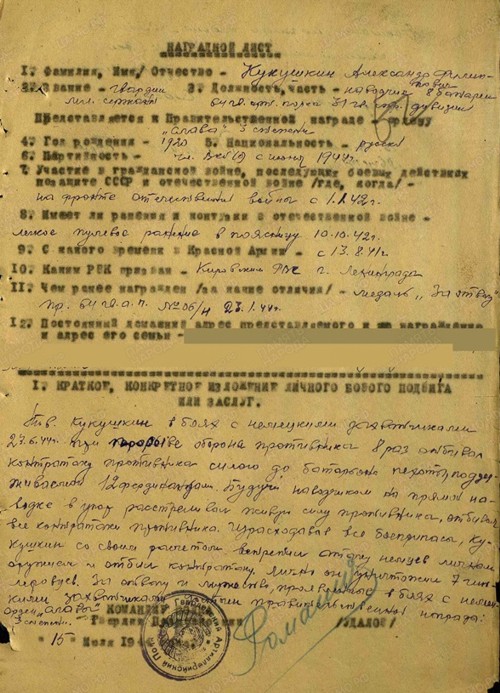 НАГРАДНОЙ ЛИСТ
1. Фамилия, Имя, Отчество - Кукушкин Александр Филип-
пович
2. Звание - гвардии 3. Должность, часть - наводчик 8 батареи
мл. сержант дивизии
Представляется к Правительственной награде - ордену
"Слава" 3 степени
4. Год рождения - 1920 5. Национальность - русский
6. Партийность - чл. ВКП(б) с июня 1944г.
7. Участие в гражданской войне, последующих боевых действиях
по защите СССР и отечественной войне /где, когда/ -
на фронте отечественной войны с 1.1.42г.
8. Имеет ли ранения и контузии в отечественной войне -
легкое пулевое ранение в поясницу 10.10.42г.
9. С какого времени в Красной Армии - с 13.8.41г.
10. Каким РВК призван - Кировский РВК г. Ленинграда
11. Чем ранее награжден /за какие отличия/ - медаль "За отвагу"
пр. № 06/н 23.1.44г.
12. Постоянный домашний адрес представляемого к награждению
и адрес его семьи -
1. КРАТКОЕ, КОНКРЕТНОЕ ИЗЛОЖЕНИЕ ЛИЧНОГО БОЕВОГО ПОДВИГА
ИЛИ ЗАСЛУГ.
Тов. Кукушкин в боях с немецкими захватчиками
23.6.44г. при прорыве обороны противника 8 раз отбивал
контратаку противника силою до батальона пехоты, поддер-
живаемой 12 фердинандам. Будучи наводчиком на прямой на-
водке в упор расстреливал живую силу противника, отбивая
все контратаки противника. Израсходовав все боеприпасы, Ку-
кушкин со своим расчетом встретил атаку немцев личным
оружием и отбил контратаку. Лично он уничтожил 7 гит-
леровцев. За отвагу и мужество, проявленные в боях с немец-
кими захватчиками правительственной награды:
орден "Слава" КОМАНДИР
3 степени. Гвардии /УДАЛОВ/
"15" Июля 194